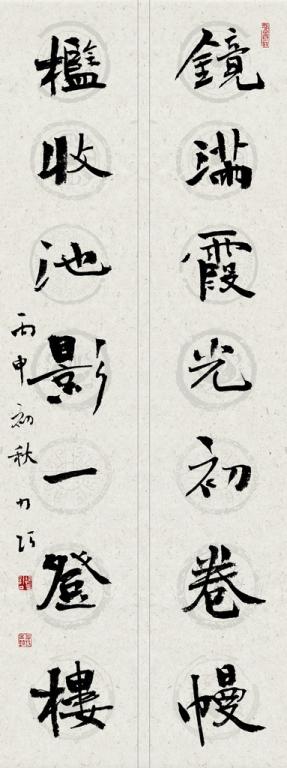 鏡滿霞光初卷幔
檻收池影一登樓
丙申初秋